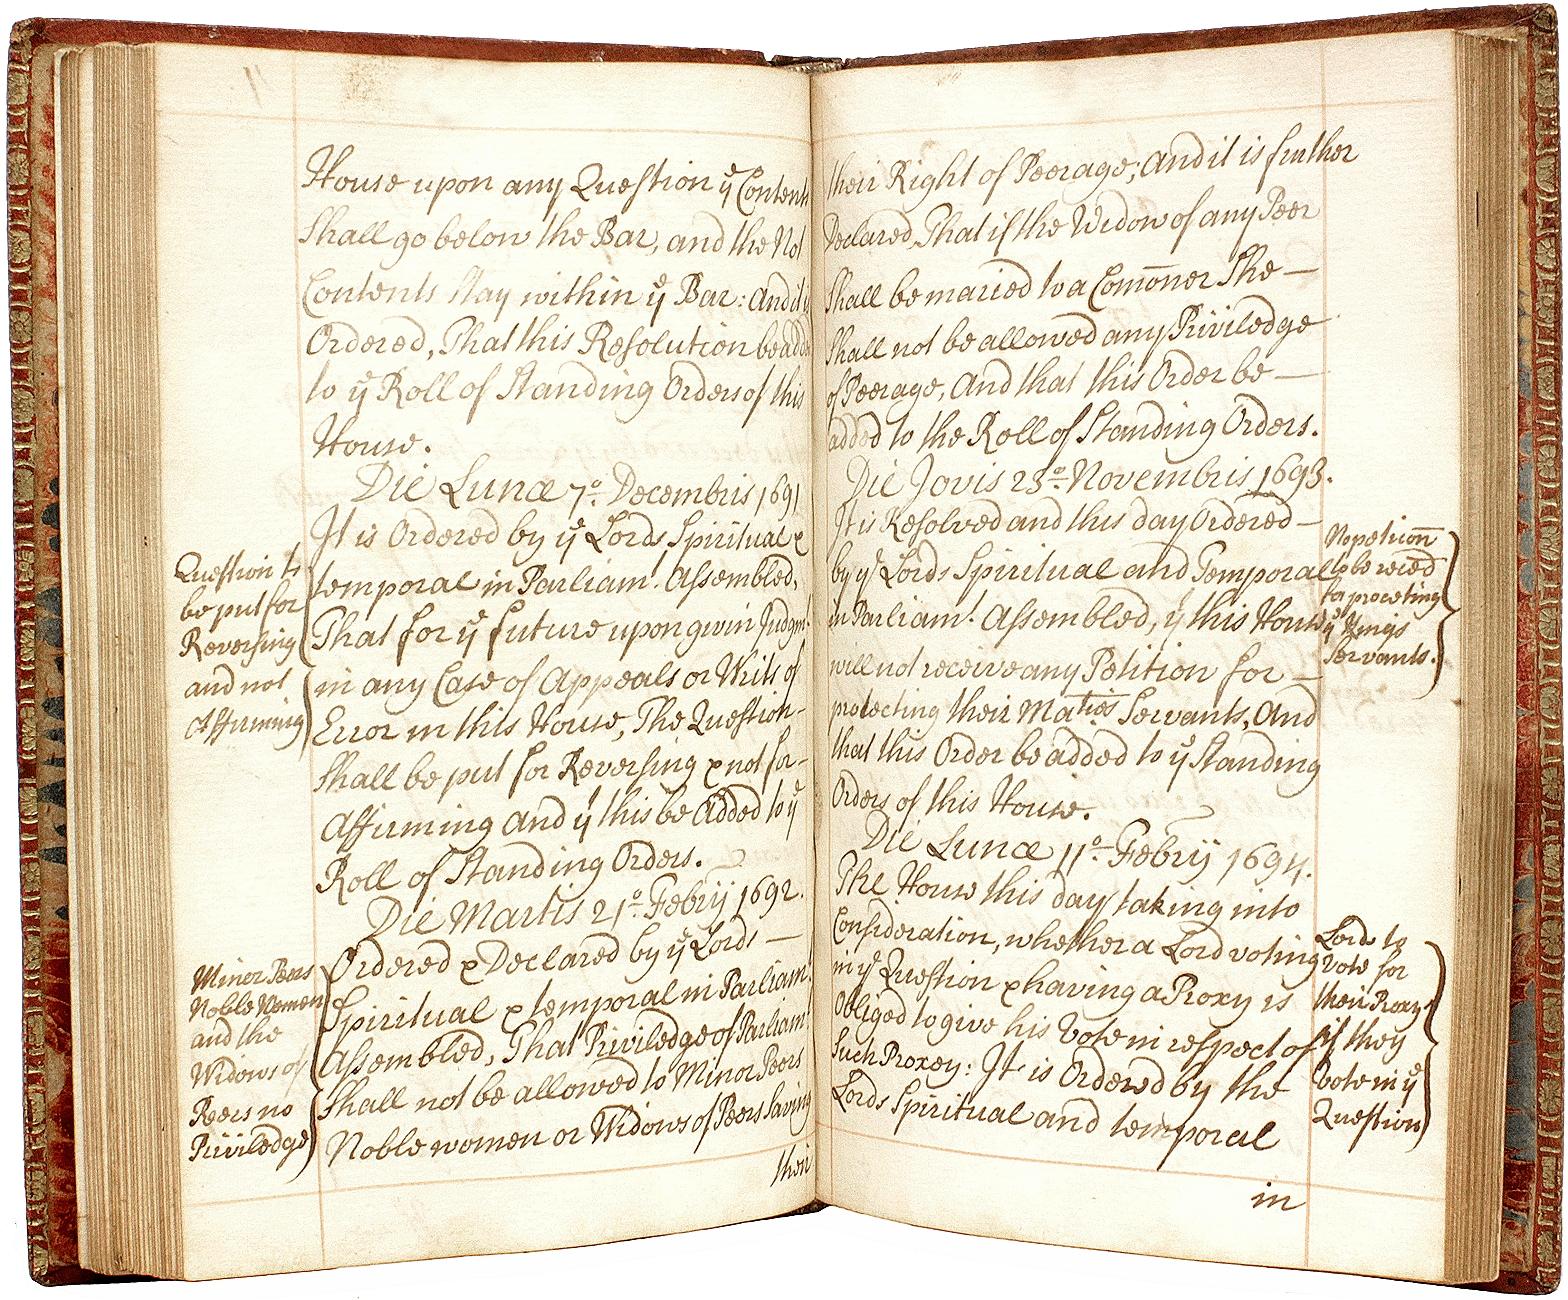 House upon any Question yͤ Contents
Shall go below the Bar, and the Not
Contents Stay within yͤ Bar: And it is
Ordered, That this Resolution be added
to yͤ Roll of Standing Orders of this
House.
Die Lunæ 7º Decembris 1691
It is Ordered by yͤ Lords Spiritual &
temporal in Parliamᵗ. Assembled,
That for yͤ future upon givin Judgmᵗ
in any Case of Appeals or Writs of
Error in this House, The Question-
Shall be put for Reversing & not for-
Affirming And yᵗ this be Added to yͤ
Roll of Standing Orders.
Die Martis 21º Febrij 1692.
Ordered & Declared by yͤ Lords —
Spiritual & temporal in Parliamᵗ
Assembled, That Priviledge of Parliamᵗ
Shall not be allowed to Minor Peers
Noble women or Widows of Peers Saving
their
Question to
be put for
Reversing
and not
Affirming
Minor Peers
Noble Women
and the
Widows of
Peers no
Priviledge
their Right of Peerage; And it is further
Declared, That if the Widow of any Peer
Shall be maried to a Com̄oner She —
Shall not be allowed any Priviledge
of Peerage, And that this Order be —
added to the Roll of Standing Orders.
Die Jovis 23º Novembris 1693.
It is Resolved and this day Ordered —
by yͤ Lords Spiritual and Temporal
in Parliamᵗ. Assembled, yᵗ this House
will not receive any Petition for —
protecting their Maties Servants, And
that this Order be added to yͤ Standing
Orders of this House.
Die Lunæ 11º Febrij 1694.
The House this day taking into
Consideration, whether a Lord voting
in yͤ Question & having a Proxy is
Obliged to give his Vote in respect of
Such Proxey: It is Ordered by the
Lords Spiritual and temporal
in
No petition̄
to be reced
for proceting
yͤ Kings
Servants.
Lords to
Vote for
their Proxy
if they
Vote in yͤ
Question